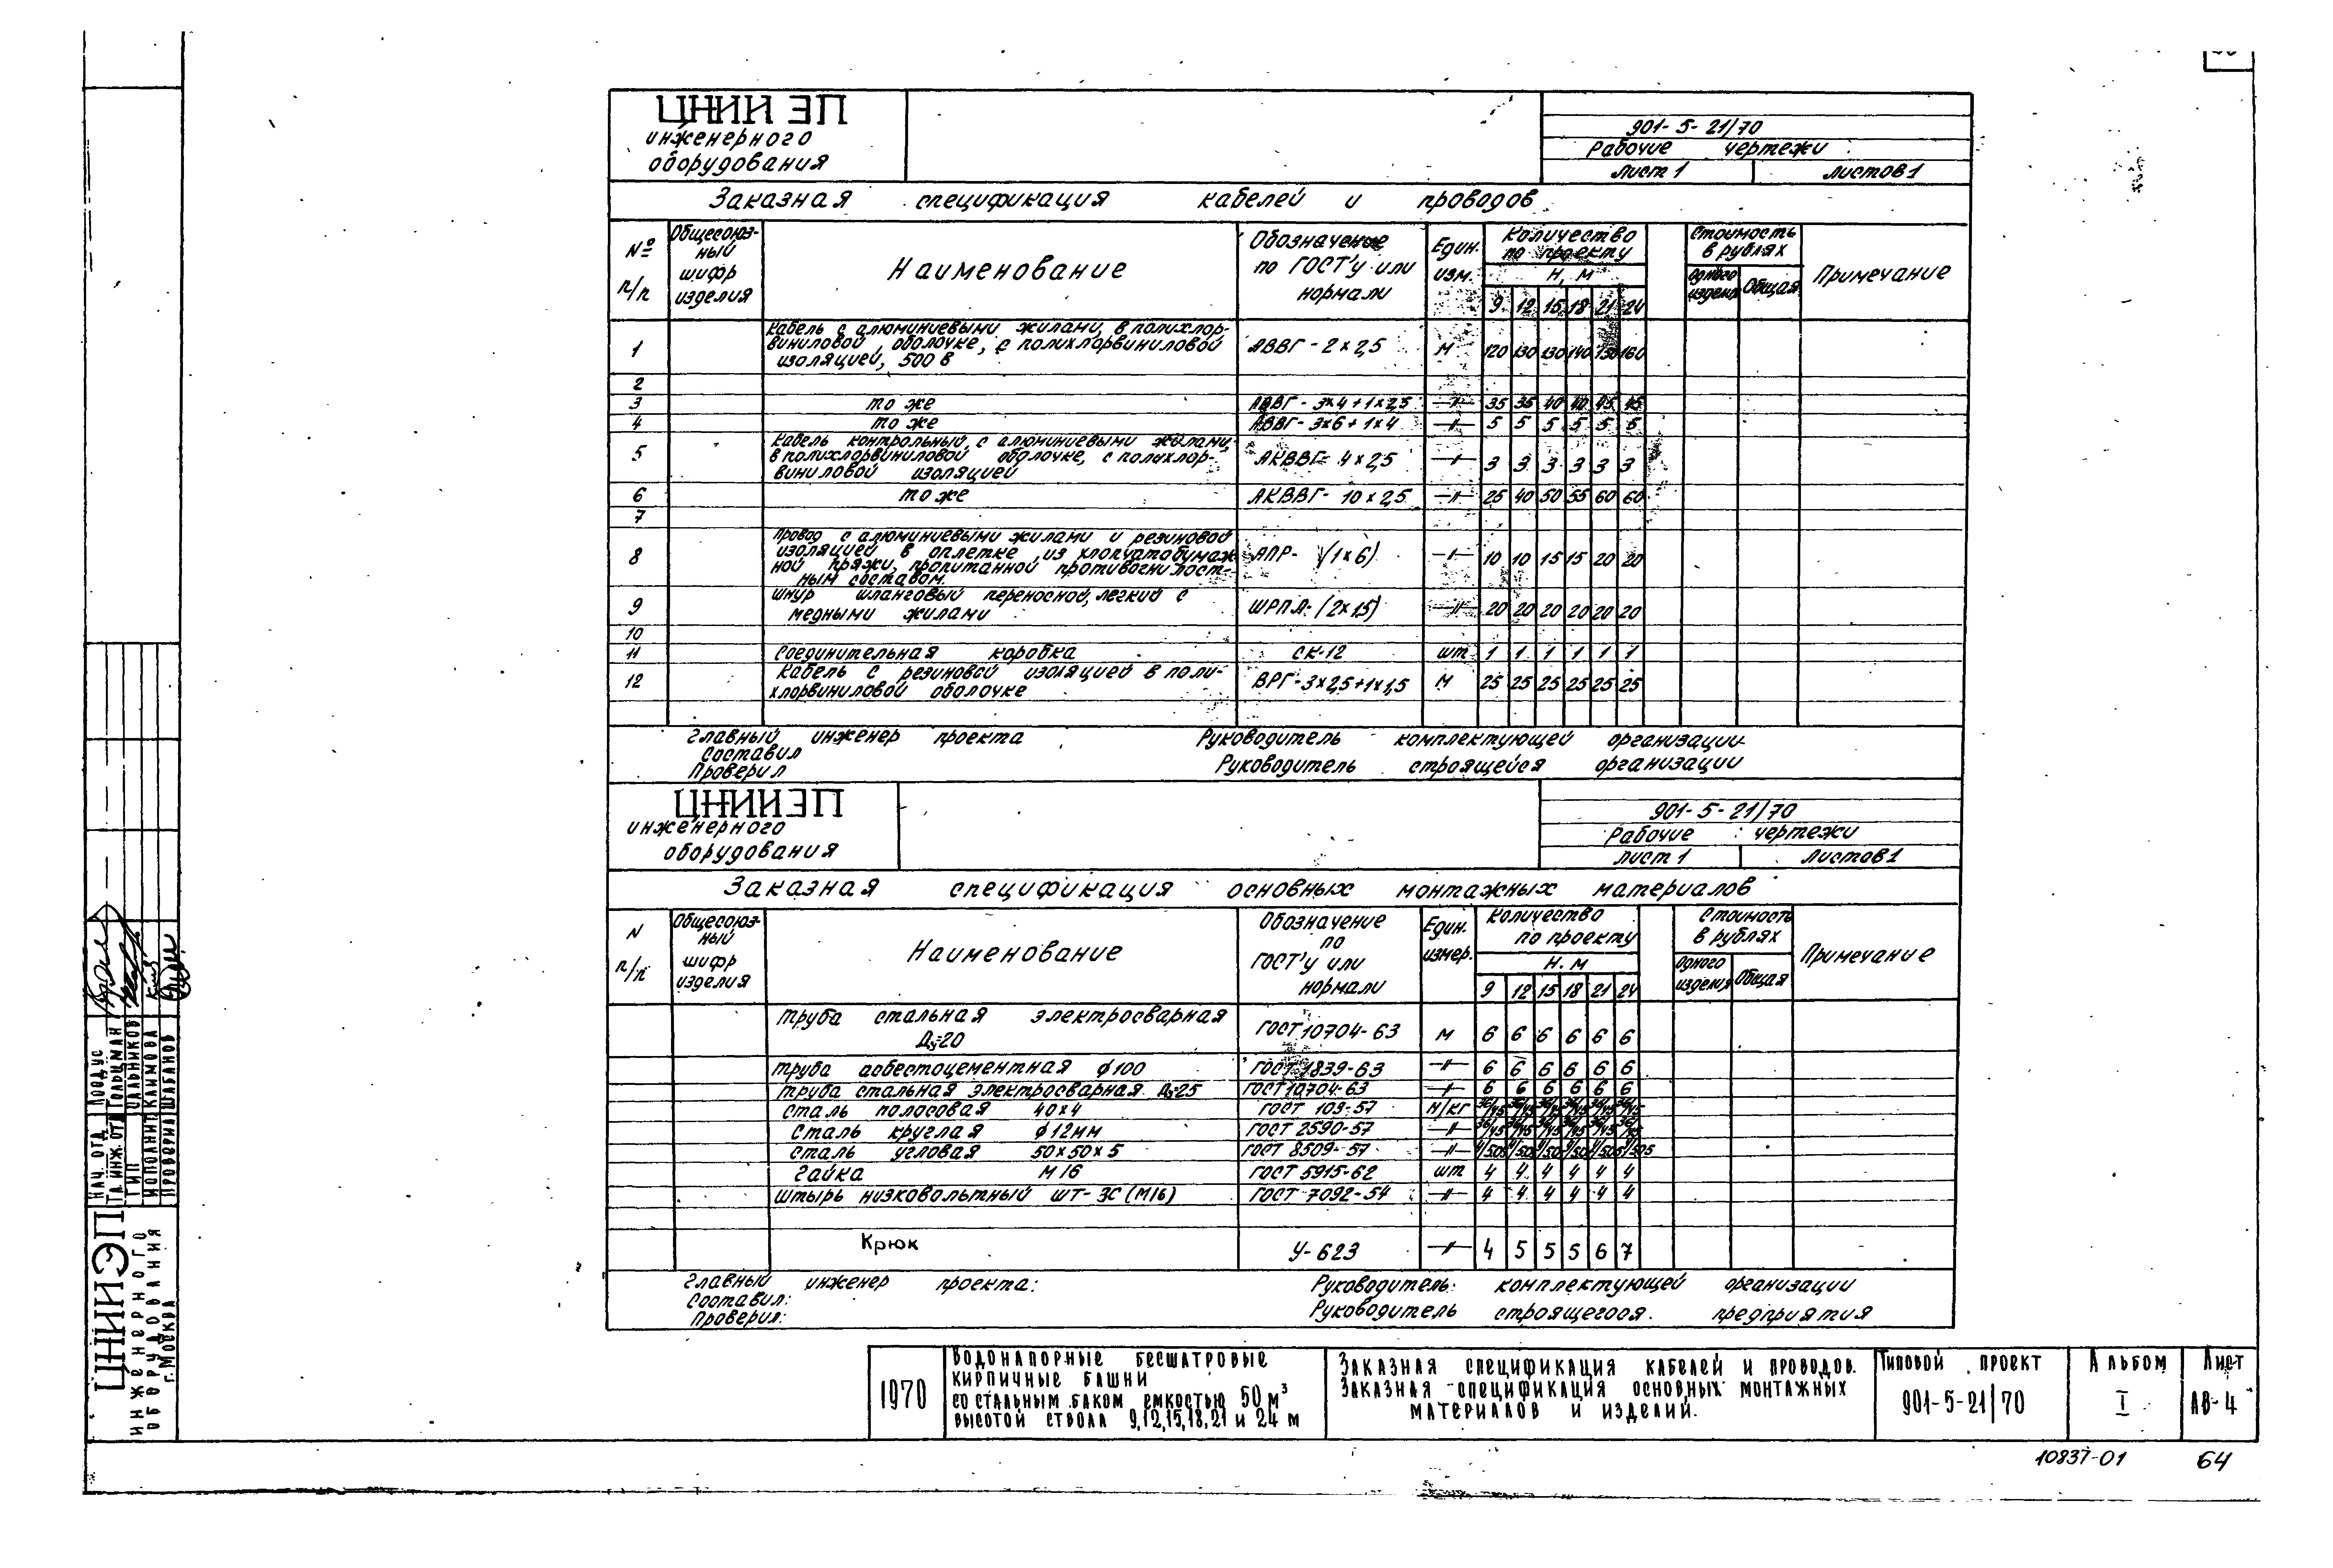 ЦНИИ ЭП
инженерного
оборудования
901-5-21/70
Рабочие чертежи
лист 1 листов 1
Заказная спецификация кабелей и проводов
№ п/п
Общесоюз-
ный
шифр
изделия
Наименование
Обозначение
по ГОСТ'у или
нормали
Един.
изм.
Количество
по проекту
Н, м
9 12 15 18 21 24
Стоимость
в рублях
одного
изделия
Общая
Примечание
1 Кабель с алюминиевыми жилами, в полихлор-
виниловой оболочке, с полихлорвиниловой
изоляцией, 500 в
АВВГ-2×2,5 м 120 130 130 140 150 160
2
3 то же АВВГ-3×4+1×2,5 —〃— 35 35 40 40 45 45
4 то же АВВГ-3×6+1×4 —〃— 5 5 5 5 5 5
5 Кабель контрольный, с алюминиевыми жилами,
в полихлорвиниловой оболочке, с полихлор-
виниловой изоляцией
АКВВГ-4×2,5 —〃— 3 3 3 3 3 3
6 то же АКВВГ-10×2,5 —〃— 25 40 50 55 60 60
7
8 Провод с алюминиевыми жилами и резиновой
изоляцией в оплетке из хлопчатобумаж-
ной пряжи, пропитанной противогнилост-
ным составом.
АПР- (1×6) —〃— 10 10 15 15 20 20
9 Шнур шланговый переносной, легкий с
медными жилами
ШРПЛ-(2×1,5) —〃— 20 20 20 20 20 20
10
11 Соединительная коробка СК-12 шт 1 1 1 1 1 1
12 Кабель с резиновой изоляцией в поли-
хлорвиниловой оболочке
ВРГ-3×2,5+1×1,5 м 25 25 25 25 25 25
Главный инженер проекта Руководитель комплектующей организации
Составил
Проверил Руководитель строящейся организации
ЦНИИЭП
инженерного
оборудования
901-5-21/70
Рабочие чертежи
лист 1 Листов 1
Заказная спецификация основных монтажных материалов
N п/п
Общесоюз-
ный
шифр
изделия
Наименование
Обозначение
по
ГОСТ'у или
нормали
Един.
измер.
Количество
по проекту
Н. м
9 12 15 18 21 24
Стоимость
в рублях
одного
изделия
Общая
Примечание
Труба стальная электросварная
Ду=20
ГОСТ 10704-63 м 6 6 6 6 6 6
Труба асбестоцементная ϕ100 ГОСТ 1839-63 —〃— 6 6 6 6 6 6
Труба стальная электросварная Ду=25 ГОСТ 10704-63 —〃— 6 6 6 6 6 6
Сталь полосовая 40×4 ГОСТ 103-57 м/кг
Сталь круглая ϕ12мм ГОСТ 2590-57 —〃—
Сталь угловая 50×50×5 ГОСТ 8509-57 —〃—
Гайка М16 ГОСТ 5915-62 шт 4 4 4 4 4 4
Штырь низковольтный ШТ-3С (М16) ГОСТ 7092-54 —〃— 4 4 4 4 4 4
Крюк У-623 —〃— 4 5 5 5 6 7
Главный инженер проекта: Руководитель комплектующей организации
Составил:
Проверил: Руководитель строящегося предприятия
НАЧ. ОТД
ГОЛЬЦМАН
ГИП САЛЬНИКОВ
ИСПОЛНИТ. КЛИМОВА
ПРОВЕРИЛ ШАБАНОВ
ЦНИИЭП
ИНЖЕНЕРНОГО
ОБОРУДОВАНИЯ
г. МОСКВА
1970
ВОДОНАПОРНЫЕ БЕСШАТРОВЫЕ
КИРПИЧНЫЕ БАШНИ
СО СТАЛЬНЫМ БАКОМ ЕМКОСТЬЮ 50 м³
ВЫСОТОЙ СТВОЛА 9,12,15,18,21 и 24 м
ЗАКАЗНАЯ СПЕЦИФИКАЦИЯ КАБЕЛЕЙ И ПРОВОДОВ.
ЗАКАЗНАЯ СПЕЦИФИКАЦИЯ ОСНОВНЫХ МОНТАЖНЫХ
МАТЕРИАЛОВ И ИЗДЕЛИЙ.
ТИПОВОЙ ПРОЕКТ
901-5-21/70
АЛЬБОМ
I
ЛИСТ
АВ-4
10837-01 64